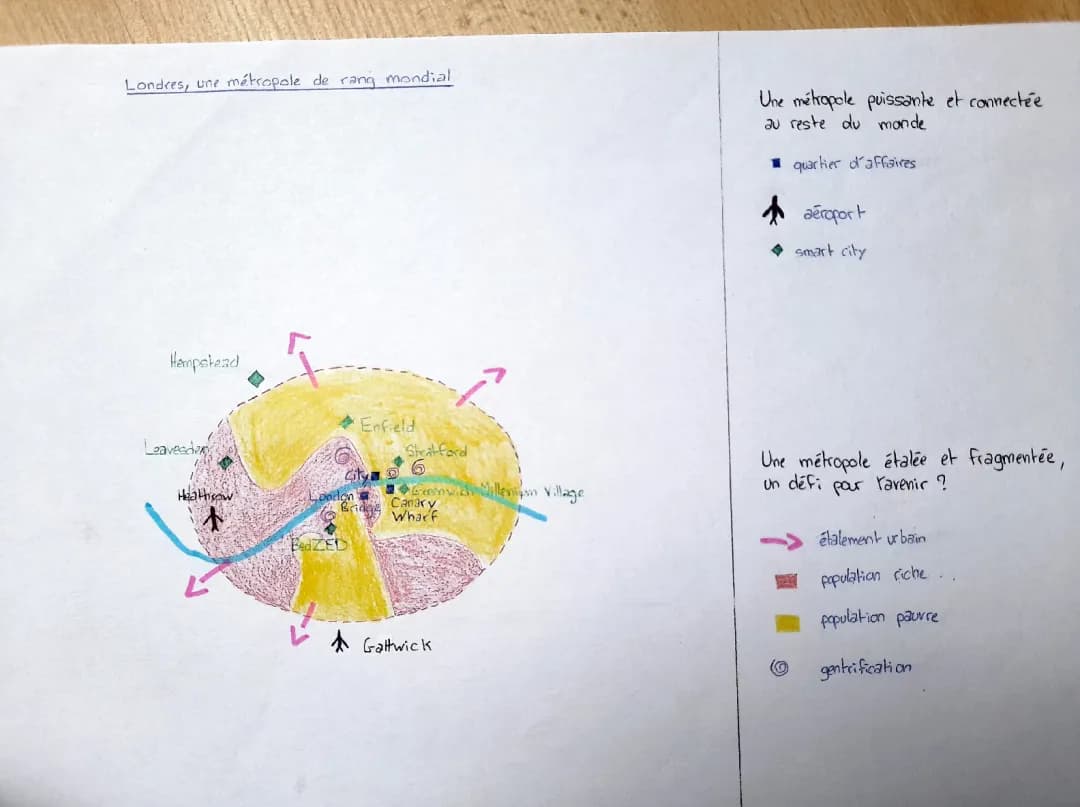 Londres, une métropole de rang mondial
Hempstead
Leavesden
Heathrow
Enfield
Stratford
City
London
Bridge
Greenwich Millenium Village
Canary
Wharf
BedZED
Gattwick
Une métropole puissante et connectée
au reste du monde
quartier d'affaires
aéroport
smart city
Une métropole étalée et fragmentée,
un défi pour l'avenir ?
étalement urbain
population riche
population pauvre
gentrification